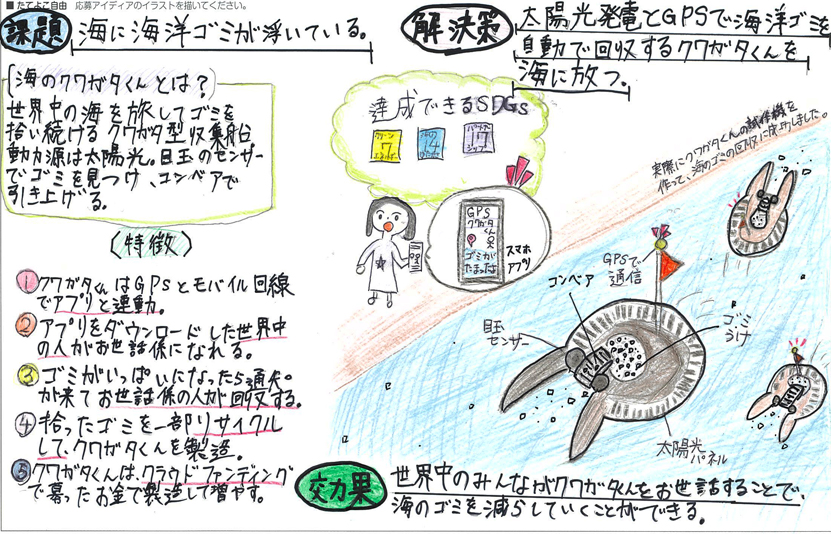 ■ たてよこ自由 応募アイディアのイラストを描いてください。
課題
海に海洋ゴミが浮いている。
解決策
太陽光発電とGPSで海洋ゴミを
自動で回収するクワガタくんを
海に放つ。
海のクワガタくんとは?
世界中の海を旅してゴミを
拾い続けるクワガタ型収集船
動力源は太陽光。目玉のセンサー
でゴミを見つけ、コンベアで
引き上げる。
達成できるSDGs
クリーン
7
エネルギー
14
パートナー
17
シップ
実際にクワガタくんの試作機を
作って、海のゴミの回収に成功しました。
〈特徴〉
① クワガタくんはGPSとモバイル回線
でアプリと連動。
② アプリをダウンロードした世界中
の人がお世話係になれる。
③ ゴミがいっぱいになったら通知
が来てお世話係の人が回収する。
④ 拾ったゴミを一部リサイクル
して、クワガタくんを製造。
⑤ クワガタくんは、クラウドファンディング
で募ったお金で製造して増やす。
GPS
クワガタ
くん
ゴミが
たまったよ
スマホ
アプリ
GPSで
通信
コンベア
目玉
センサー
ゴミ
うけ
太陽光
パネル
効果
世界中のみんながクワガタくんをお世話することで、
海のゴミを減らしていくことができる。